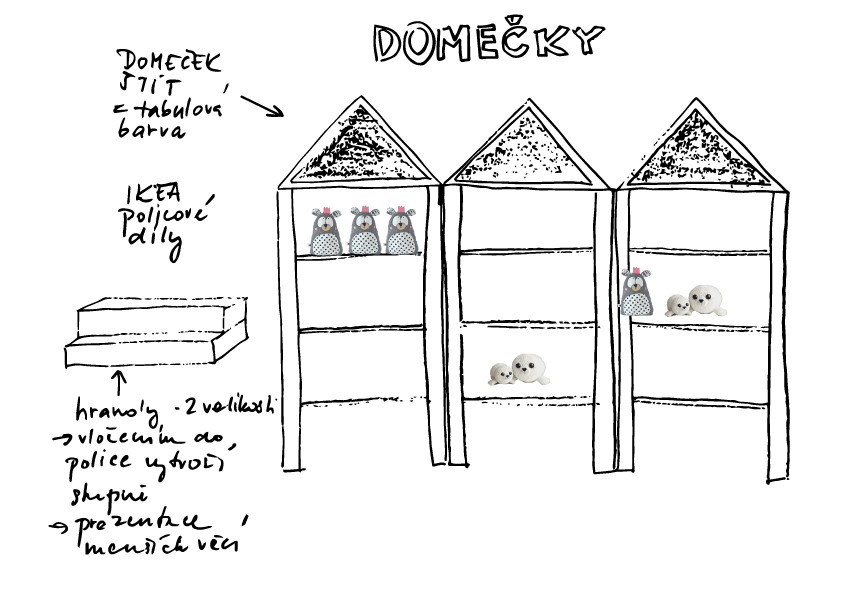 DOMEČKY
DOMEČEK
ŠTÍT
= tabulová
barva
IKEA
policové
díly
hranoly - 2 velikosti
→ vložením do
police vytvoří
stupně
→ prezentace
menších věcí